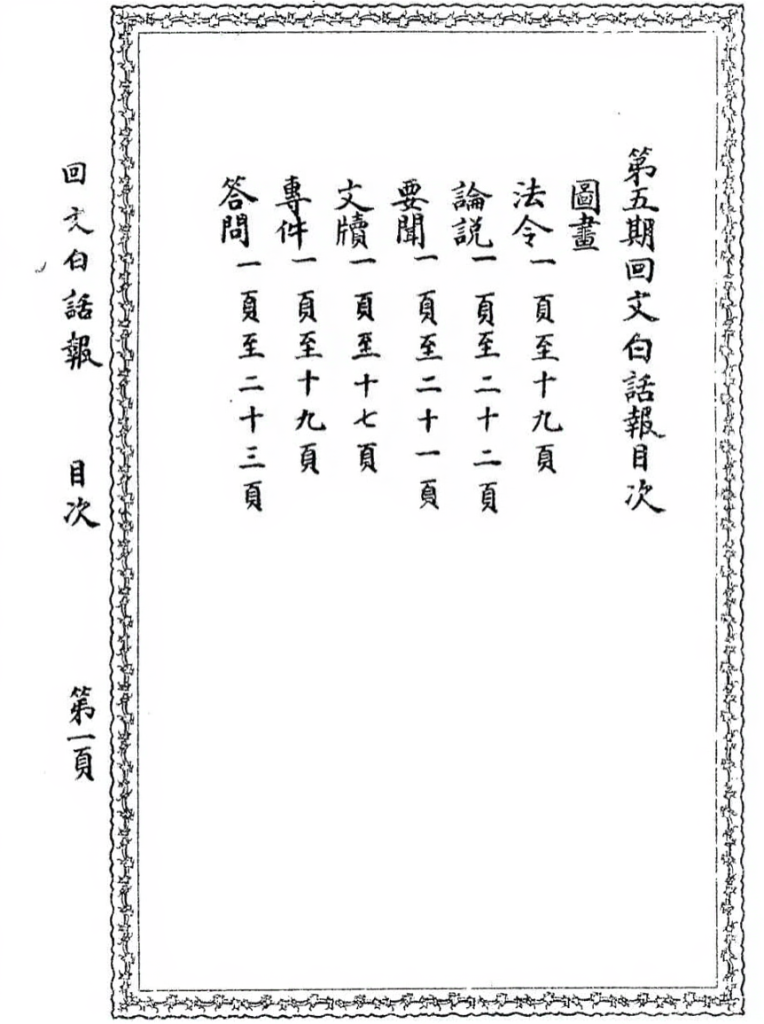 第五期回文白話報目次
圖畫
法令一頁至十九頁
論説一頁至二十二頁
要聞一頁至二十一頁
文牘一頁至十七頁
專件一頁至十九頁
答問一頁至二十三頁
回文白話報 目次 第一頁